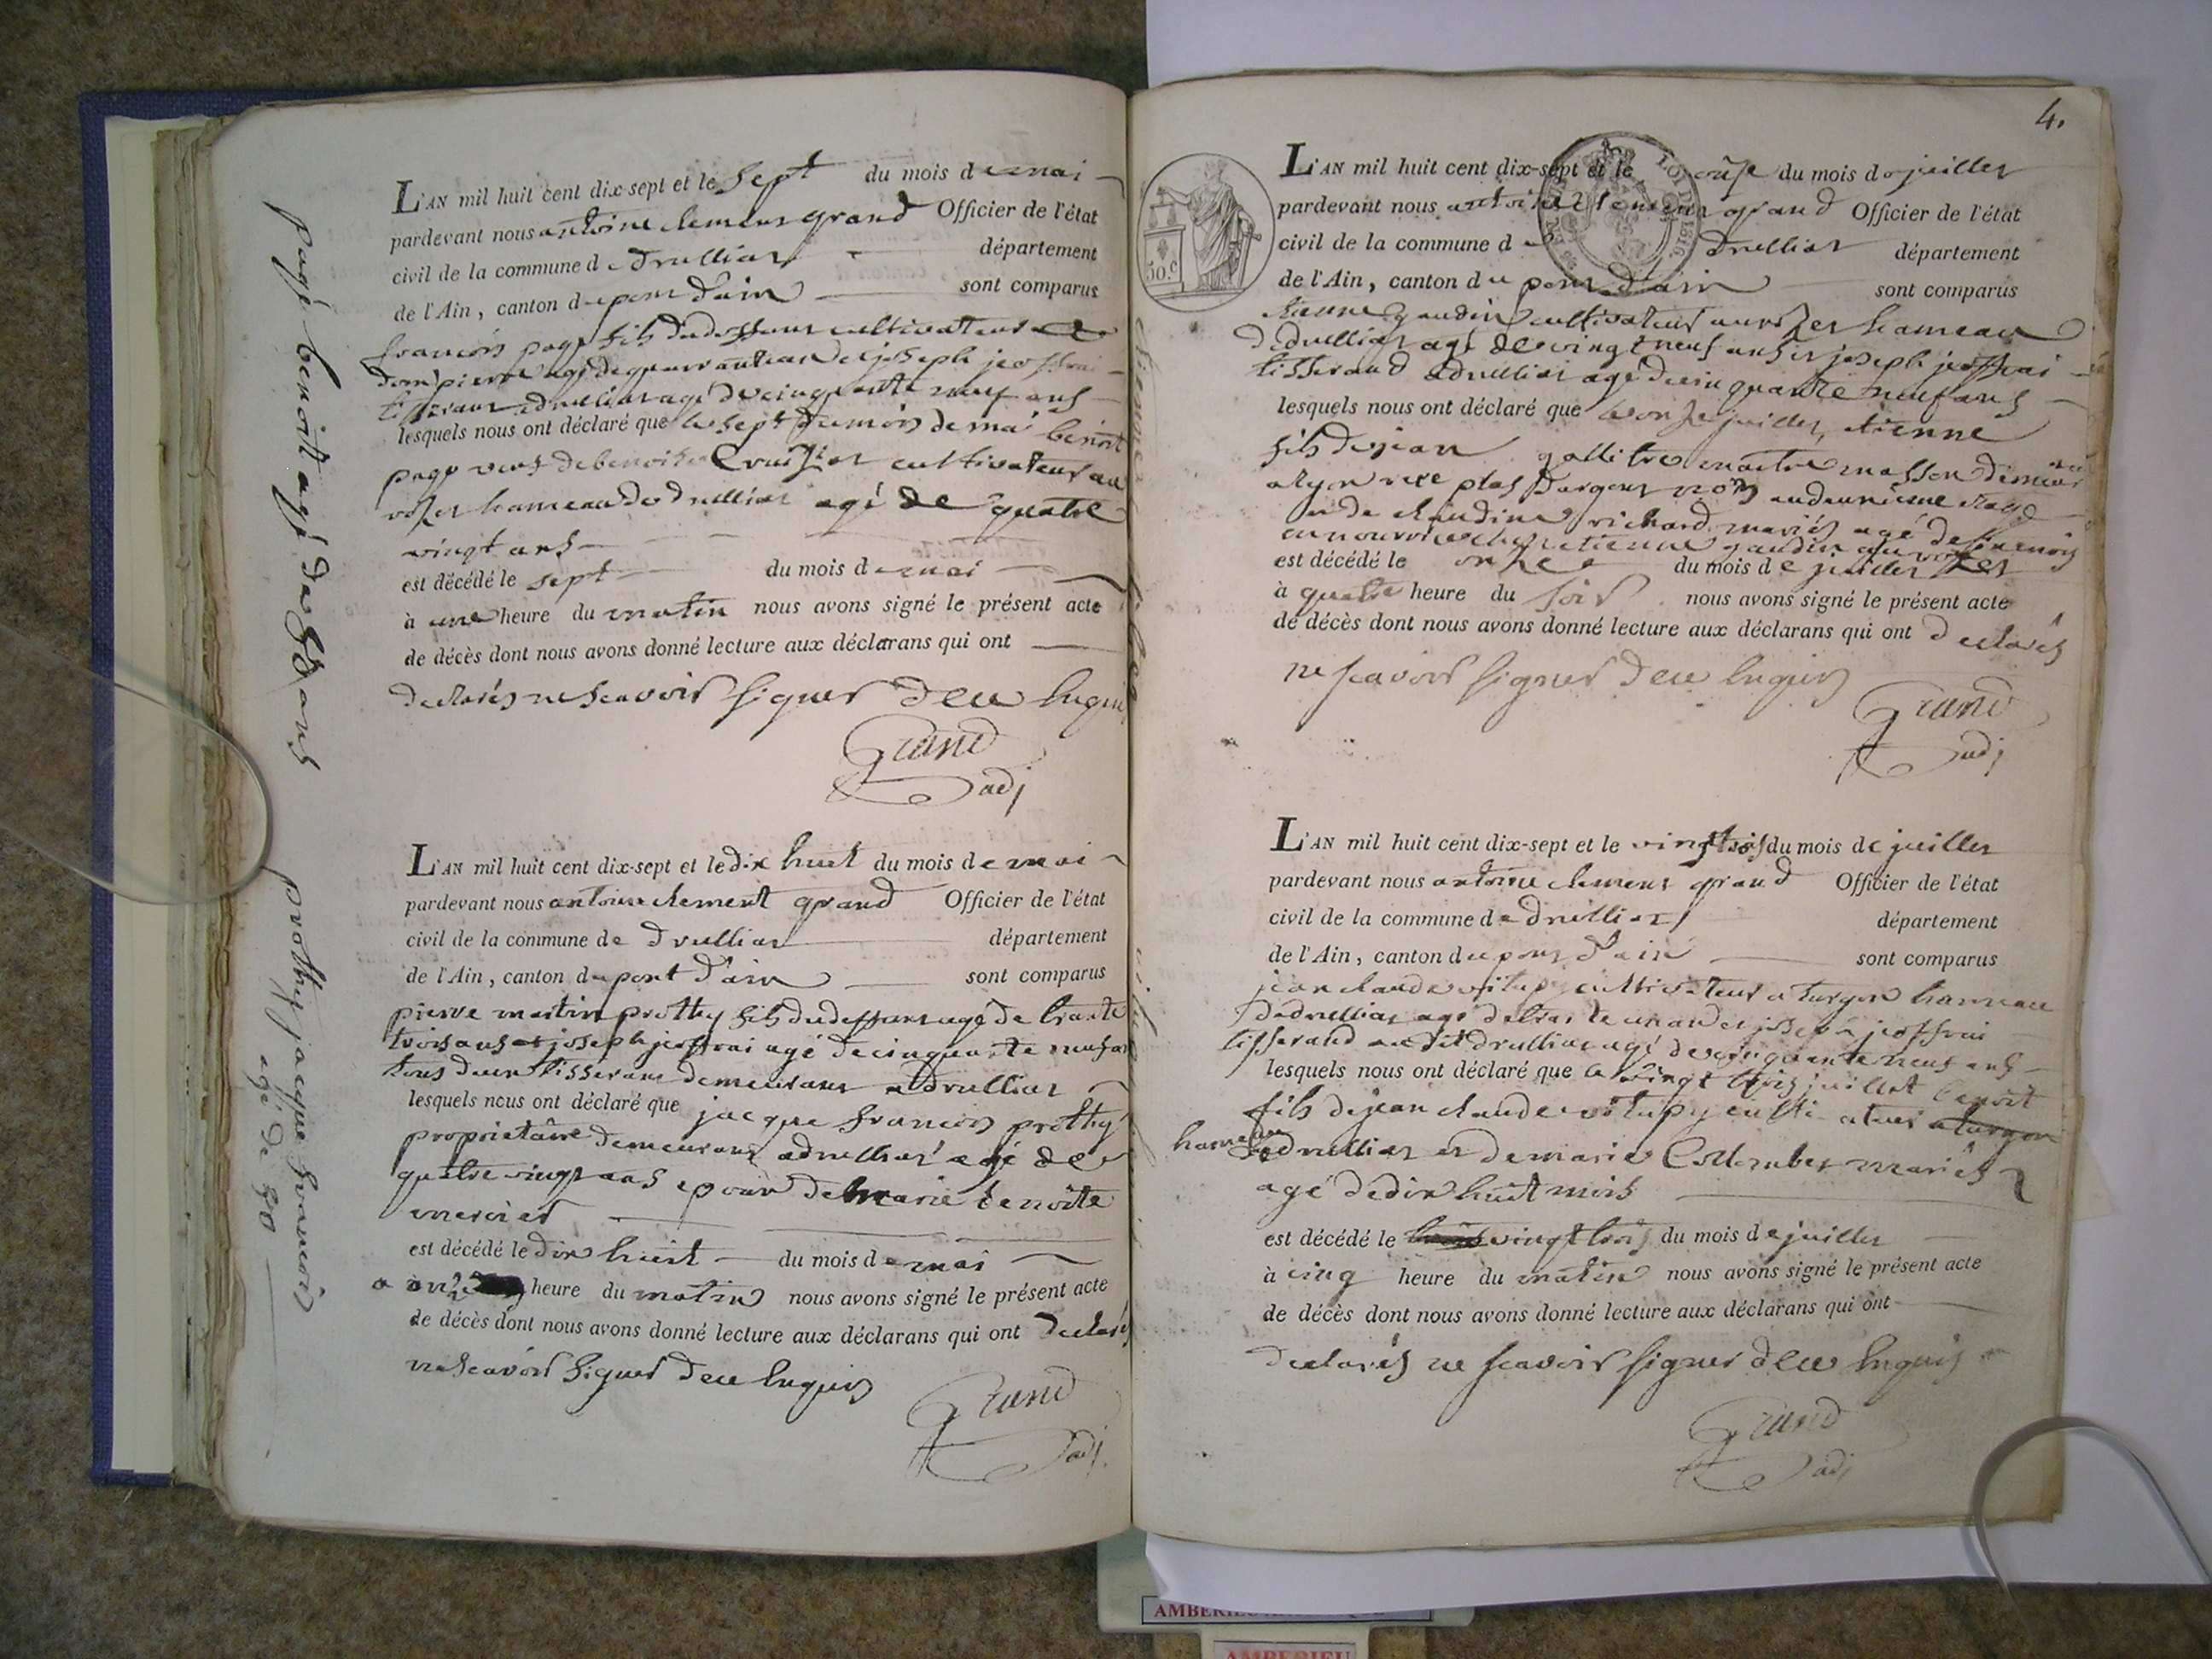 pagé benoitt agé de 80 ans
L'AN mil huit cent dix-sept et le sept du mois de mai
pardevant nous antoine clemens grand Officier de l'état
civil de la commune de druilliat département
de l'Ain, canton du pont d'ain sont comparus
francois page fils du deffunt cultivateur
dompierre agé de quarante ans et joseph jeoffrai
tisserant a druilliat agé de cinquante neuf ans
lesquels nous ont déclaré que le sept du mois de mai benoit
page veuf de benoite cultivateur au
hameau de druilliat agé de quatre
vingt ans
est décédé le sept du mois de mai
à une heure du matin nous avons signé le présent acte
de décès dont nous avons donné lecture aux déclarans qui ont
declarés ne scavoir signer de ce enquis
Grand
adj
prothy jacque francois
agé de 80
L'AN mil huit cent dix-sept et le dix huit du mois de mai
pardevant nous antoine clement grand Officier de l'état
civil de la commune de druilliat département
de l'Ain, canton du pont d'ain sont comparus
pierre martin prothy fils du deffunt agé de trante
trois ans et joseph jeoffrai agé de cinquante neuf ans
tous deux tisserans demeurans a druilliat
lesquels nous ont déclaré que jacque francois prothy
proprietaire demeurant a druilliat agé de
quatre vingt ans epoux de marie benoite
mercier
est décédé le dix huit du mois de mai
a onze heure du matin nous avons signé le présent acte
de décès dont nous avons donné lecture aux déclarans qui ont declarés
ne scavoir signer de ce enquis
Grand
adj.
4.
50.c
LOI DE 1816
L'AN mil huit cent dix-sept et le onze du mois de juillet
pardevant nous antoine clemens grand Officier de l'état
civil de la commune de druilliat département
de l'Ain, canton du pont d'ain sont comparus
etienne gaudin cultivateur au hameau
de druilliat agé de vingt neuf ans et joseph jeoffrai
tisserand a druilliat agé de cinquante neuf ans
lesquels nous ont déclaré que le onze juillet, etienne
fils de jean maitre masson
a lyon rue au deuxieme
et de claudine richard mariés agé de mois
en nourrice chez etienne gaudin au
est décédé le onze du mois de juillet
à quatre heure du soir nous avons signé le présent acte
de décès dont nous avons donné lecture aux déclarans qui ont declarés
ne scavoir signer de ce enquis
Grand
adj
L'AN mil huit cent dix-sept et le vingt trois du mois de juillet
pardevant nous antoine clemens grand Officier de l'état
civil de la commune de druilliat département
de l'Ain, canton du pont d'ain sont comparus
jean claude cultivateur a turgon hameau
de druilliat agé de trante un ans et joseph jeoffrai
tisserand au dit druilliat agé de cinquante neuf ans
lesquels nous ont déclaré que le vingt trois juillet benoit
fils de jean claude cultivateur a turgon
hameau de druilliat et de marie mariés
agé de dix huit mois
est décédé le vingt trois du mois de juillet
à cinq heure du matin nous avons signé le présent acte
de décès dont nous avons donné lecture aux déclarans qui ont
declarés ne scavoir signer de ce enquis
Grand
adj
AMBERIEU